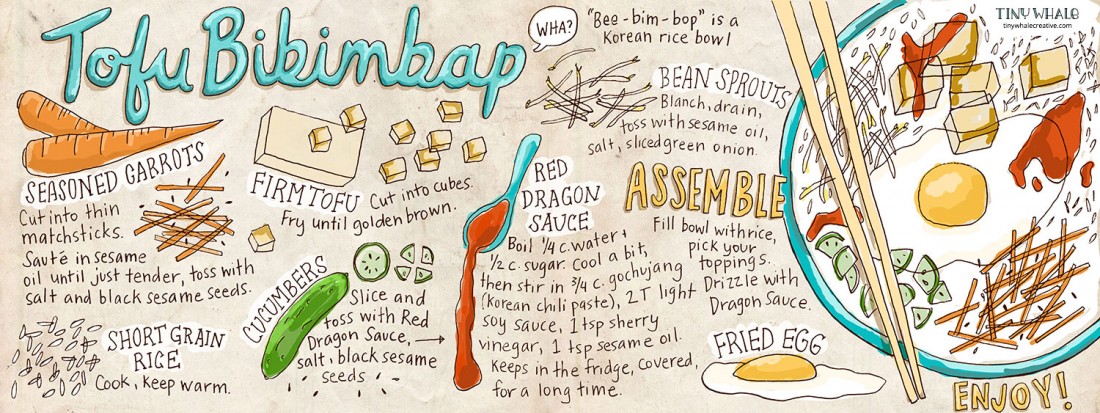 Tofu Bibimbap
WHA?
"Bee-bim-bop" is a
Korean rice bowl
TINY WHALE
tinywhalecreative.com
SEASONED CARROTS
Cut into thin
matchsticks.
Sauté in sesame
oil until just tender, toss with
salt and black sesame seeds.
FIRM TOFU
Cut into cubes.
Fry until golden brown.
BEAN SPROUTS
Blanch, drain,
toss with sesame oil,
salt, sliced green onion.
SHORT GRAIN
RICE
Cook, keep warm.
CUCUMBERS
Slice and
toss with Red
Dragon Sauce,
salt, black sesame
seeds
RED
DRAGON
SAUCE
Boil 1/4 c. water +
1/2 c. sugar. Cool a bit,
then stir in 3/4 c. gochujang
(korean chili paste), 2 T light
soy sauce, 1 tsp sherry
vinegar, 1 tsp sesame oil.
Keeps in the fridge, covered,
for a long time.
ASSEMBLE
Fill bowl with rice,
pick your
toppings.
Drizzle with
Dragon Sauce.
FRIED EGG
ENJOY!